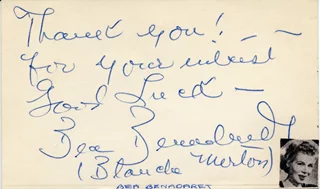 Thank you! -
for your interest -
Good Luck -
Bea Benaderet
(Blanche Morton)
BEA BENADARET